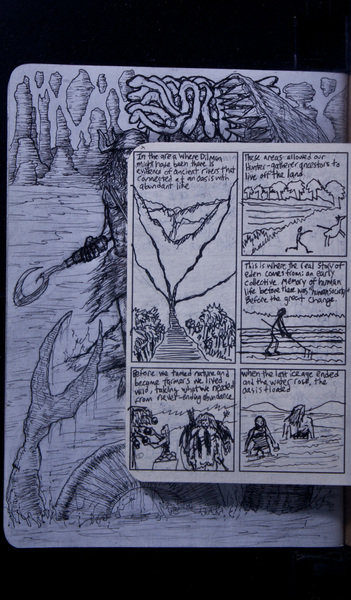 In the area where Dilmon
might have been there is
evidence of ancient rivers that
connected at an oasis with
abundant life
These areas allowed our
Hunter-gatherer ancestors to
live off the land.
This is where the real story of
eden comes from: an early
collective memory of human
life before there was "human society"
Before the great change.
Before we tamed nature and
became farmers we lived
wild, taking what we needed
from never-ending abundance
When the last ice age ended
and the water rose, the
oasis flooded